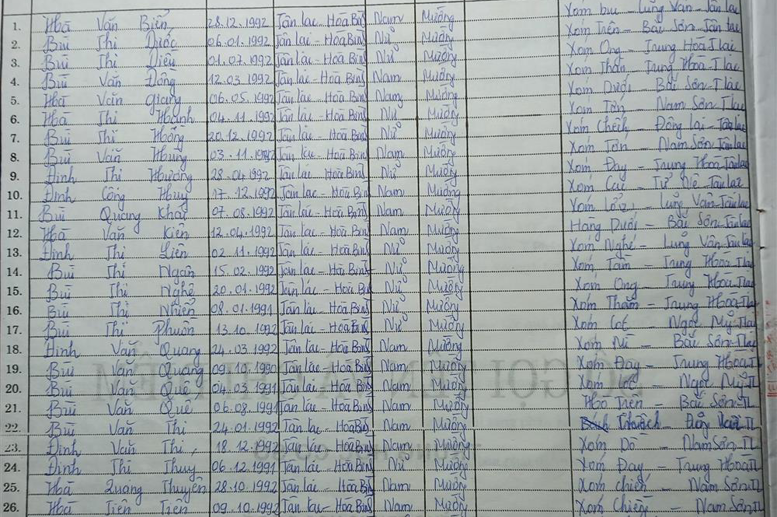 1. Hà Văn Biển 28.12.1992 Tân lạc - Hoà Bình Nam Mường Lũng Vân - Tân lạc
2. Bùi Thị Diốc 06.01.1992 Tân lạc - Hoà Bình Nữ Mường Xóm Tiên - Bãi Sơn Tân lạc
3. Bùi Thị Diêu 01.07.1992 Tân lạc - Hoà Bình Nữ Mường Xóm Ong - Trung Hoà T lạc
4. Bùi Văn Đông 12.03.1992 Tân lạc - Hoà Bình Nam Mường Xóm Thăn, Trung Hoà T lạc
5. Hà Văn Giang 06.05.1992 Tân lạc - Hoà Bình Nam Mường Xóm Dưới - Bãi Sơn T lạc
6. Hà Thị Hoành 04.11.1992 Tân lạc - Hoà Bình Nữ Mường Xóm Tớn - Nam Sơn T lạc
7. Bùi Thị Hồng 20.12.1992 Tân lạc - Hoà Bình Nữ Mường Xóm Chếch - Đông lai - Tân lạc
8. Bùi Văn Hùng 03.11.1992 Tân lạc - Hoà Bình Nam Mường Xóm Tớn - Nam Sơn Tân lạc
9. Đinh Thị Hương 28.04.1992 Tân lạc - Hoà Bình Nữ Mường Xóm Đay - Trung Hoà Tân lạc
10. Đinh Công Huy 17.12.1992 Tân lạc - Hoà Bình Nam Mường Xóm Cú - Tử Nê Tân lạc
11. Bùi Quang Khải 07.08.1992 Tân lạc - Hoà Bình Nam Mường Xóm - Lũng Vân Tân lạc
12. Hà Văn Kiên 12.04.1992 Tân lạc - Hoà Bình Nam Mường Hàng Dưới - Bãi Sơn Tân lạc
13. Đinh Thị Liên 02.11.1992 Tân lạc - Hoà Bình Nữ Mường Xóm Nghẹ - Lũng Vân Tân lạc
14. Bùi Thị Ngân 15.02.1992 Tân lạc - Hoà Bình Nữ Mường Xóm Tam - Trung Hoà TL
15. Bùi Thị Nghệ 20.01.1992 Tân lạc - Hoà Bình Nữ Mường Xóm Ong - Trung Hoà TL
16. Bùi Thị Nhiên 08.01.1991 Tân lạc - Hoà Bình Nữ Mường Xóm Thăm - Trung Hoà TL
17. Bùi Thị Phuốn 13.10.1992 Tân lạc - Hoà Bình Nữ Mường Xóm Cọt - Ngọc Mỹ TL
18. Đinh Văn Quang 24.03.1992 Tân lạc - Hoà Bình Nam Mường Xóm - Bãi Sơn T lạc
19. Bùi Văn Quảng 09.12.1990 Tân lạc - Hoà Bình Nam Mường Xóm Đay - Trung Hoà TL
20. Bùi Văn Quê 04.03.1991 Tân lạc - Hoà Bình Nam Mường Xóm Cọc - Ngọc Mỹ TL
21. Bùi Văn Quế 06.08.1991 Tân lạc - Hoà Bình Nam Mường Tiên - Bãi Sơn TL
22. Bùi Văn Thi 24.01.1992 Tân lạc - Hoà Bình Nam Mường
23. Đinh Văn Thi 18.12.1992 Tân lạc - Hoà Bình Nam Mường Xóm Dồ - Nam Sơn TL
24. Đinh Thị Thuỷ 06.12.1991 Tân lạc - Hoà Bình Nữ Mường Xóm Đay - Trung Hoà TL
25. Hà Quang Thuyên 28.10.1992 Tân lạc - Hoà Bình Nam Mường Xóm Chiến - Nam Sơn TL
26. Hà Tiên Tiến 09.10.1992 Tân lạc - Hoà Bình Nam Mường Xóm Chiến - Nam Sơn TL